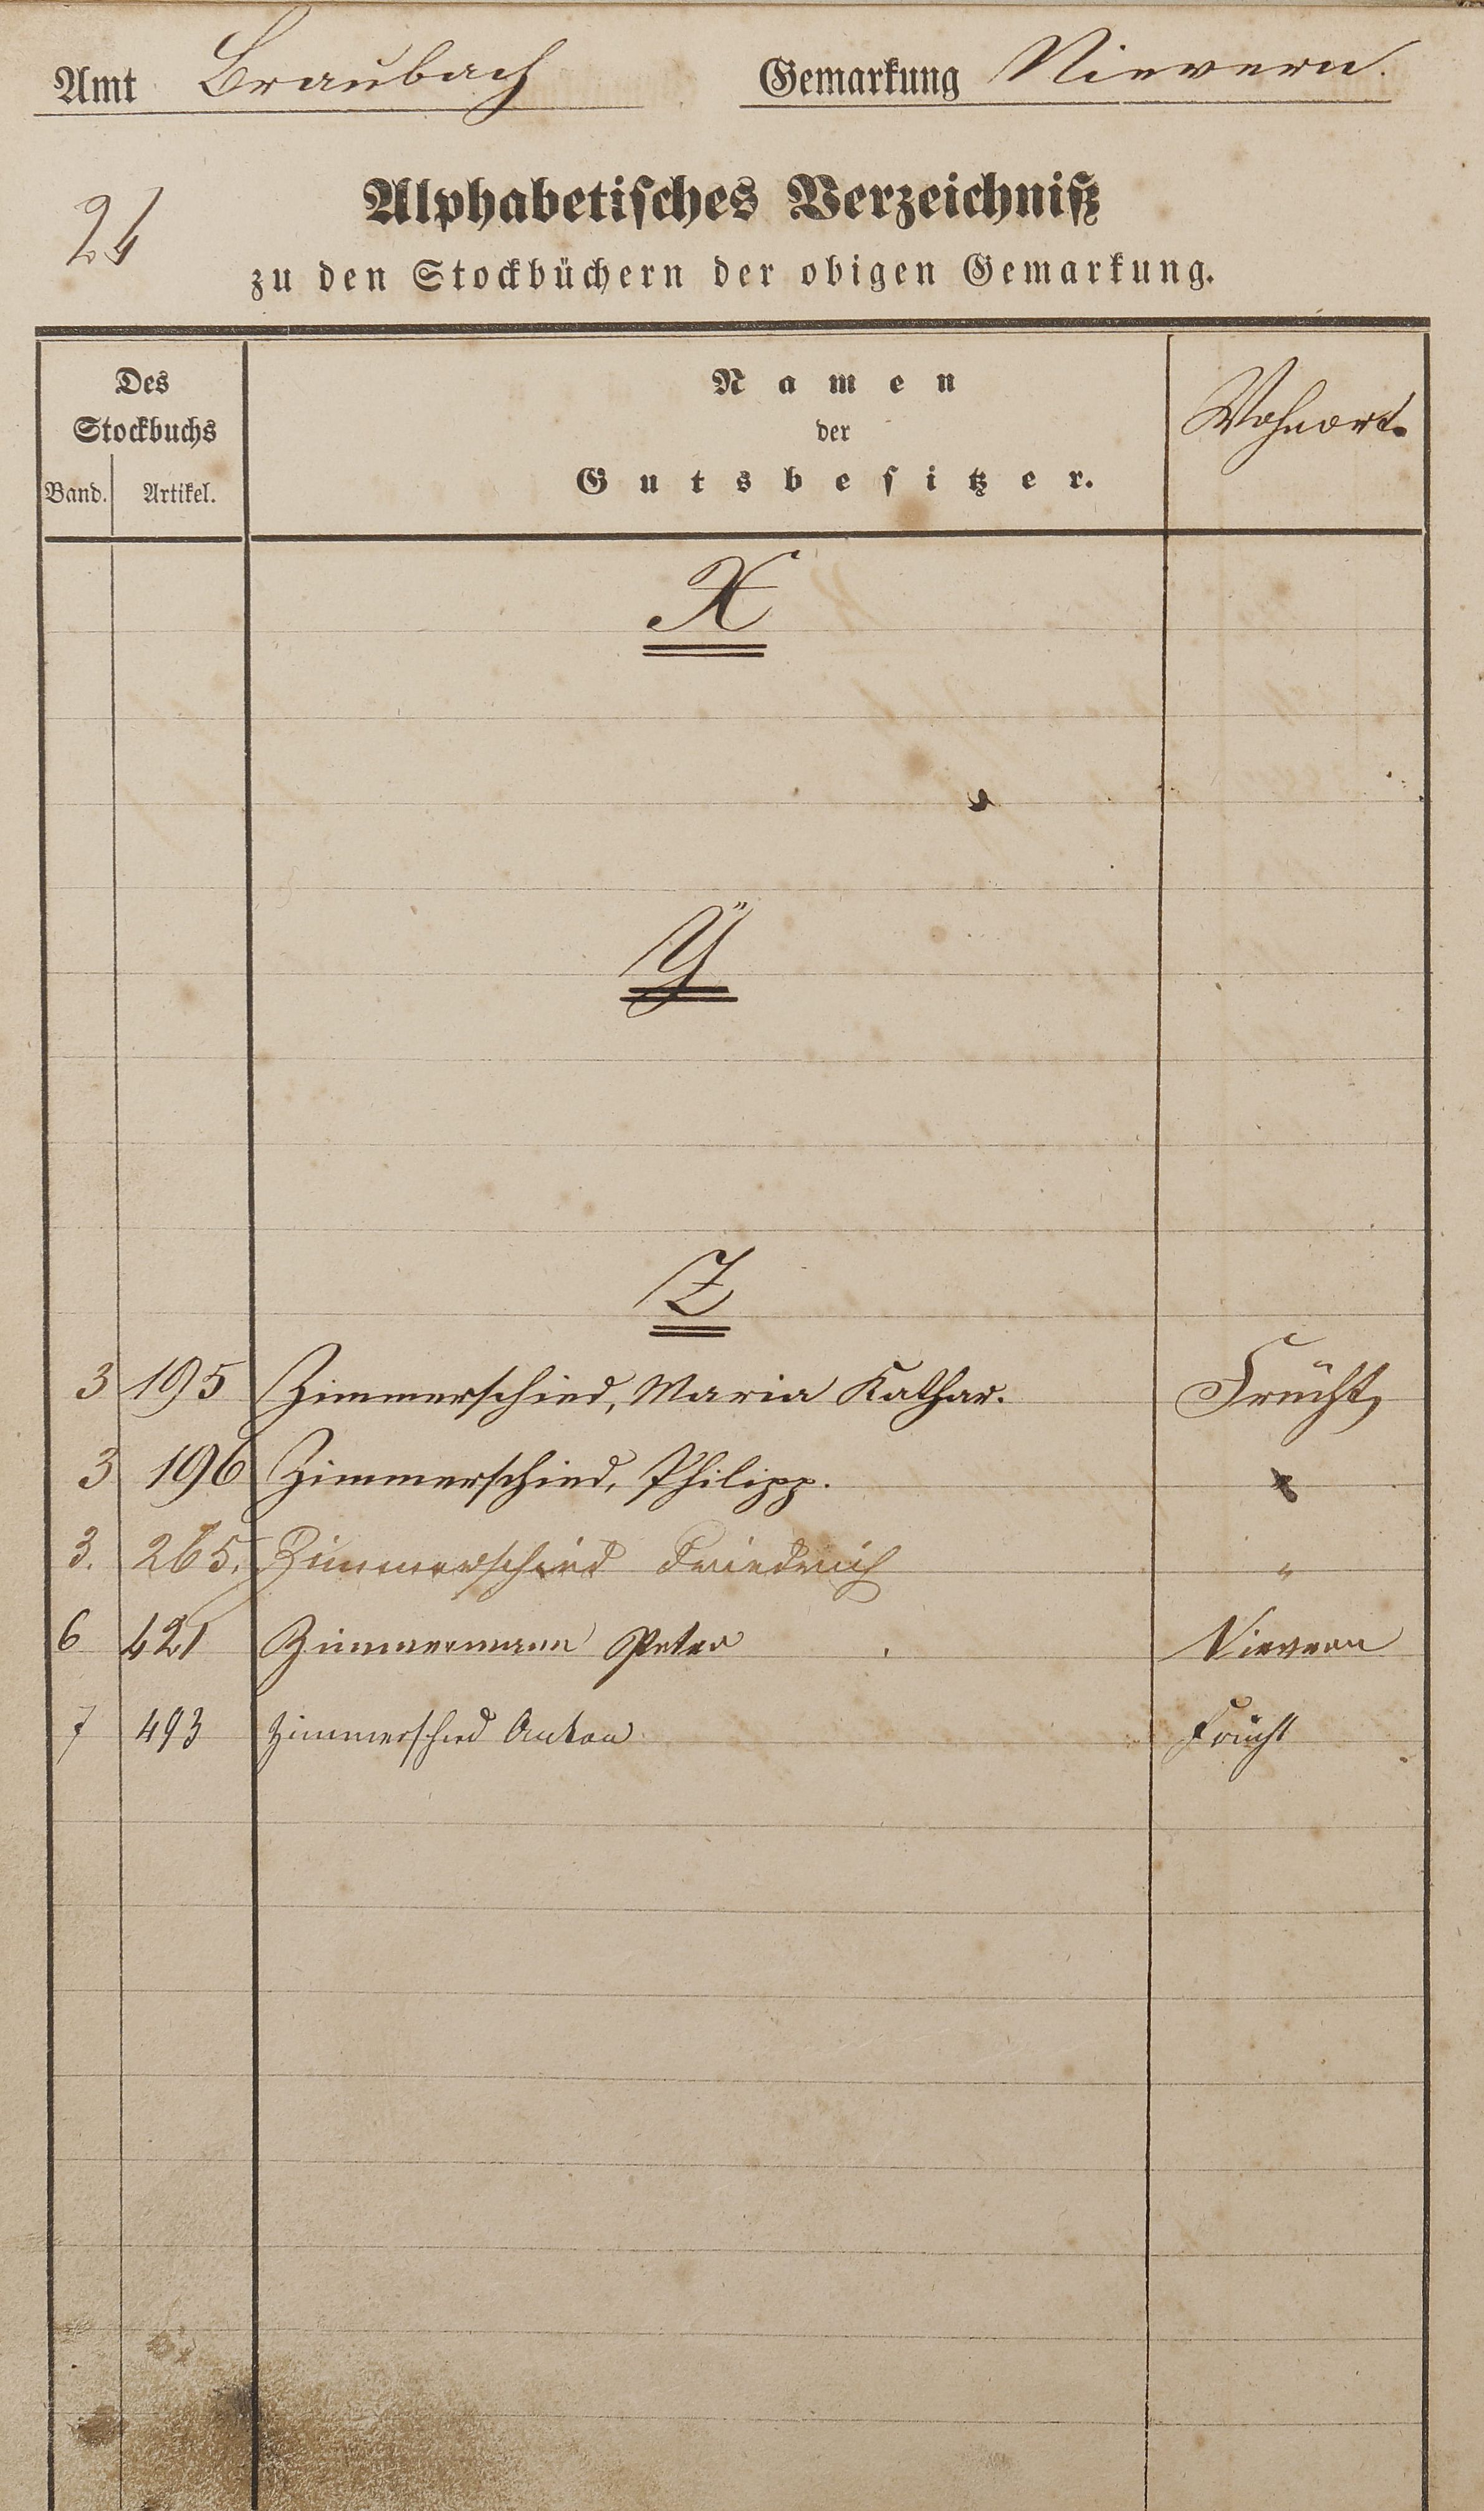 Amt Braubach Gemarkung Nievern.
Alphabetisches Verzeichniß
zu den Stockbüchern der obigen Gemarkung.
Des Stockbuchs
Band. Artikel.
Namen
der
Gutsbesitzer.
Wohnort.
X
Ÿ
Z
3 195 Zimmerschied, Maria Kathar. Frücht
3 196 Zimmerschied, Philipp.
3. 265. Zimmerschied Friedrich "
6 421 Zimmermann Peter Nievern
7 493 Zimmerschied Anton Frücht